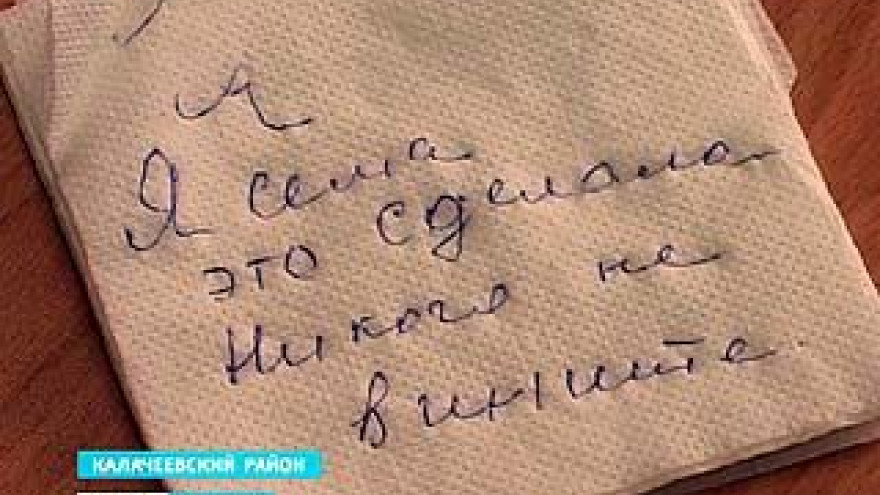 Я
Я сама
это сделала
Никого не
вините.
КАЛАЧЕЕВСКИЙ РАЙОН